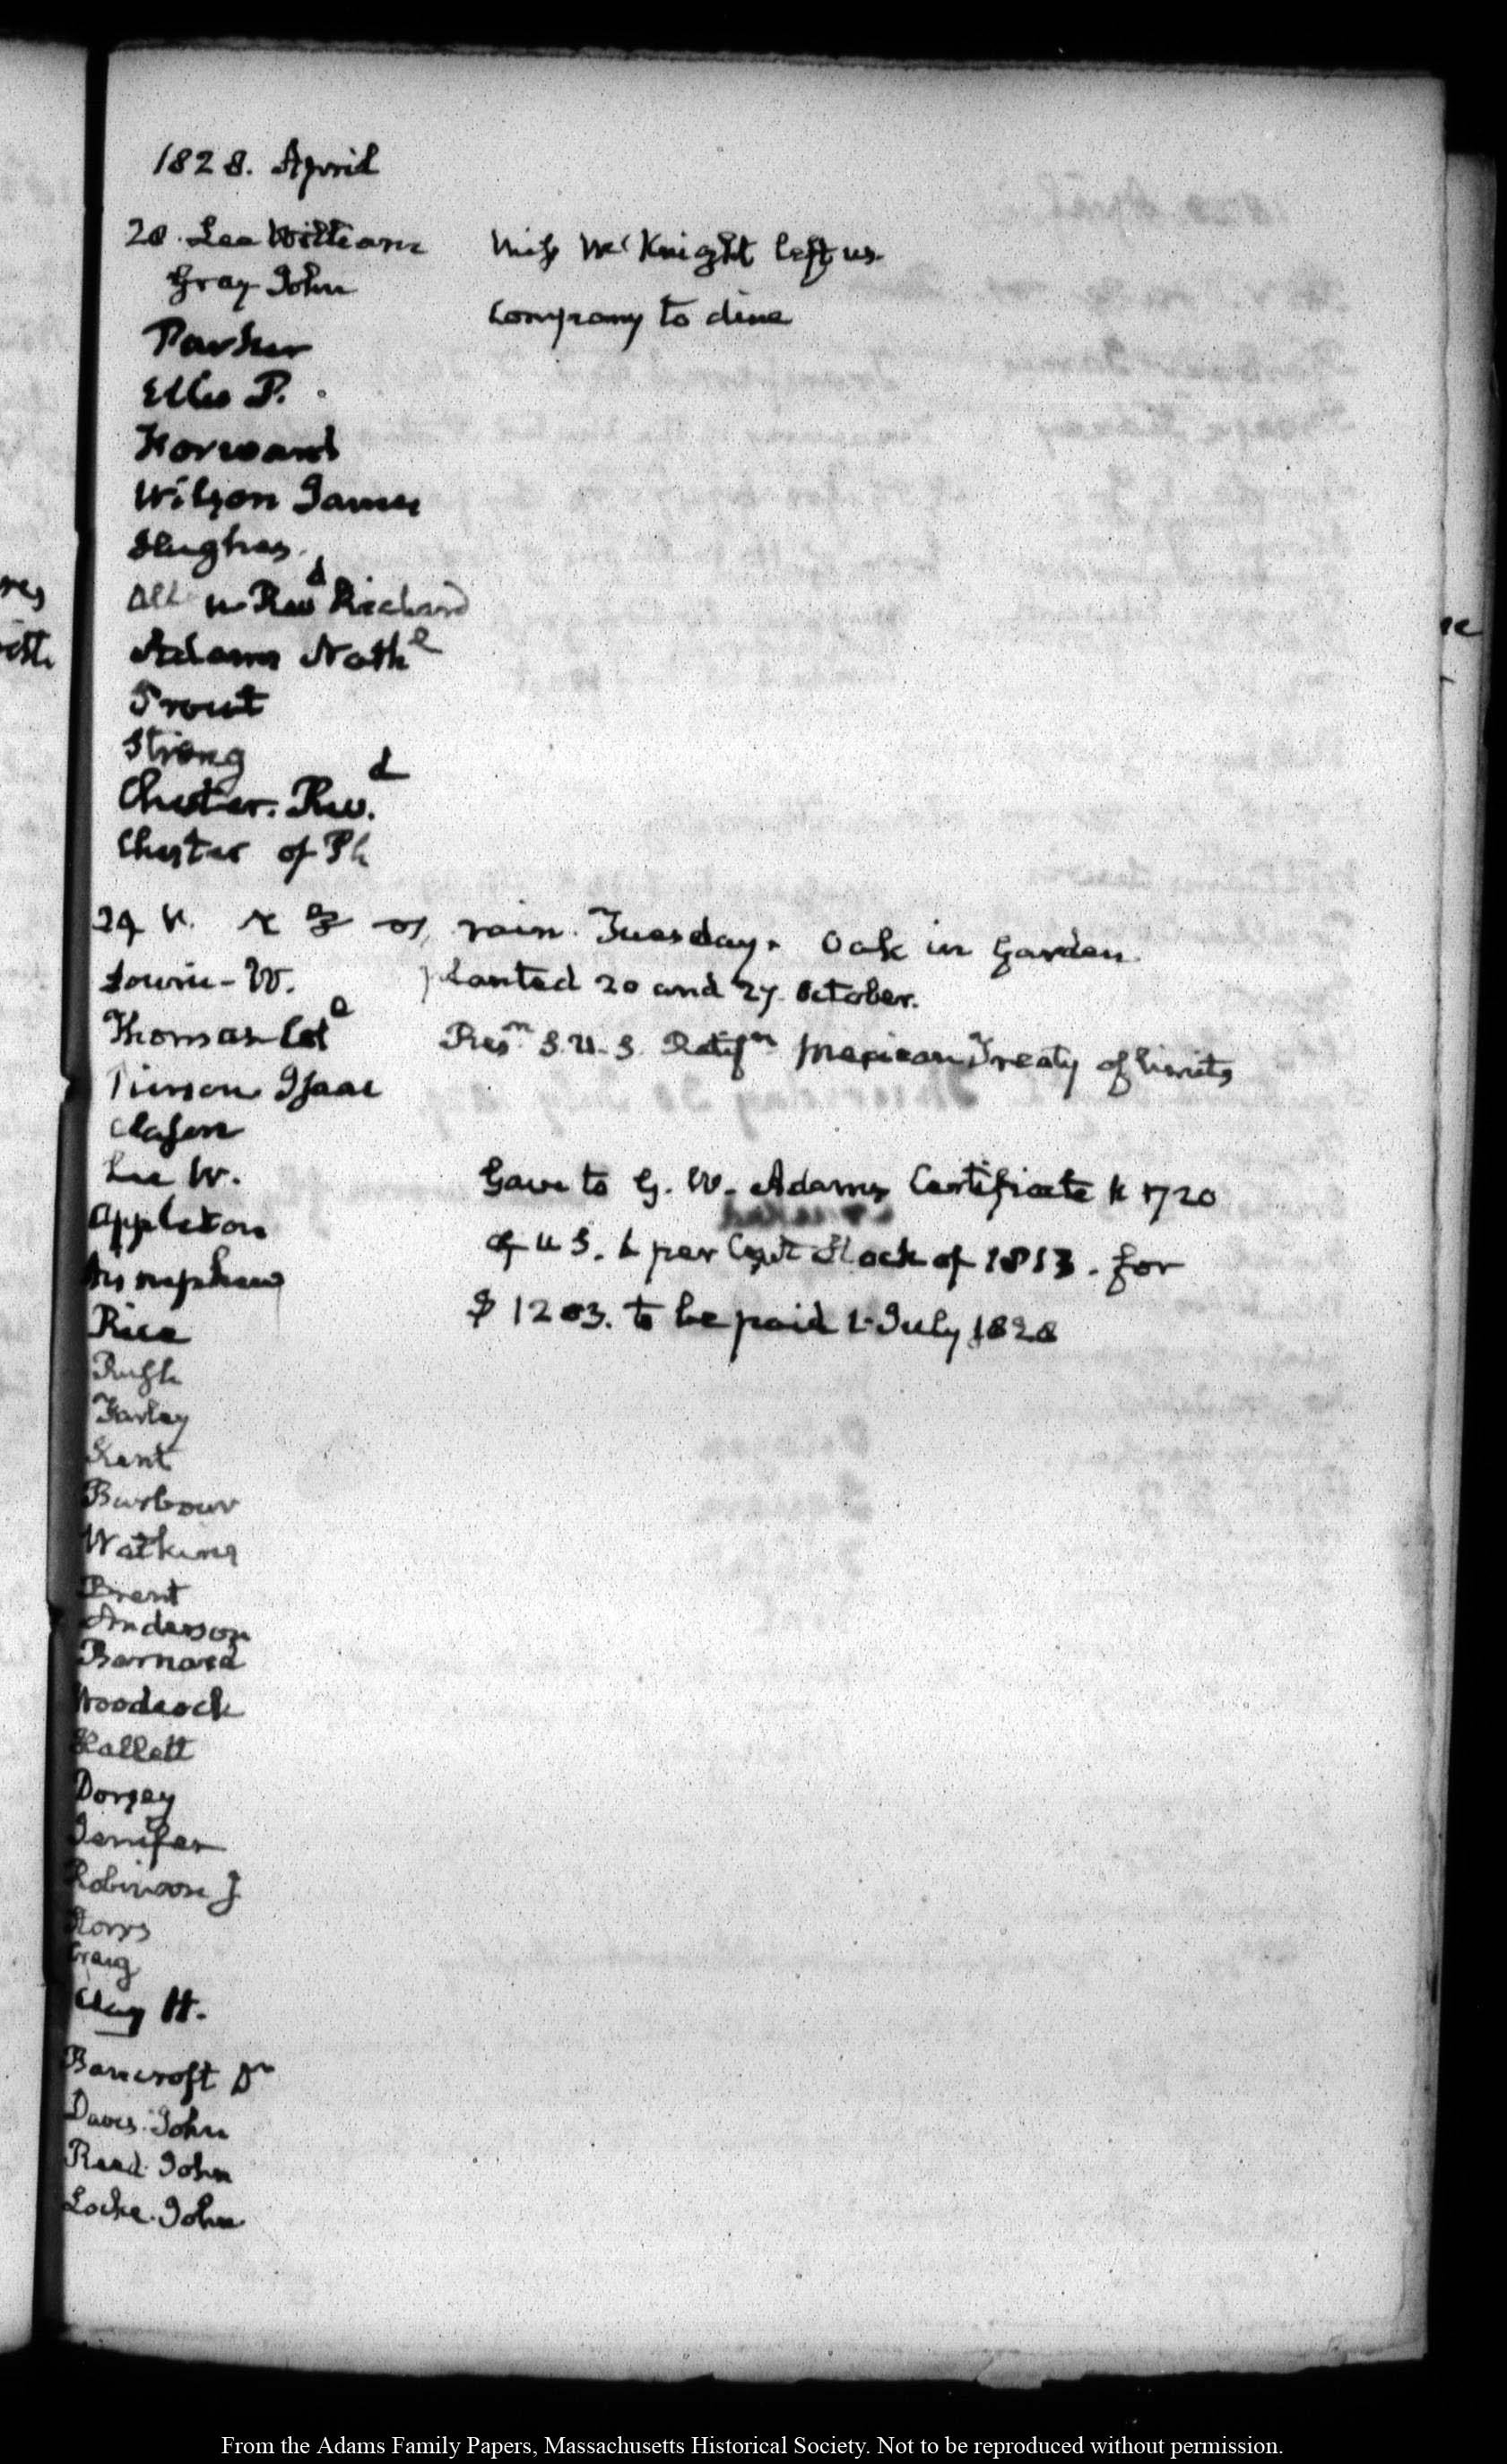 1828. April
28. Lee William
Miss McKnight left us.
Gray John
Company to dine
Parker
Ellis P.
Forward
Wilson James
Hughes.
Revd Richard
Adams Nathl
Prout
Strong
Chester. Revd.
Chester of Ph
29. V. rain. Tuesday. Oak in Garden
Lowrie - W.
planted 20 and 27. October.
Thomas Col
Resn S.U.S. Ratifn Mexican Treaty of limits
Pierson Isaac
Clason
Lee W.
Gave to G. W. Adams Certificate N 1720
Appleton
of U S. 6 per Cent Stock of 1813. for
his nephew
$ 1203. to be paid 1. July 1828
Rice
Rush
Farley
Kent
Barbour
Watkins
Brent
Anderson
Barnard
Woodcock
Hallett
Dorsey
Jenifer
Robinson J
Storrs
Craig
Clay H.
Bancroft Dr
Davis. John
Reed. John
Locke. John
From the Adams Family Papers, Massachusetts Historical Society. Not to be reproduced without permission.